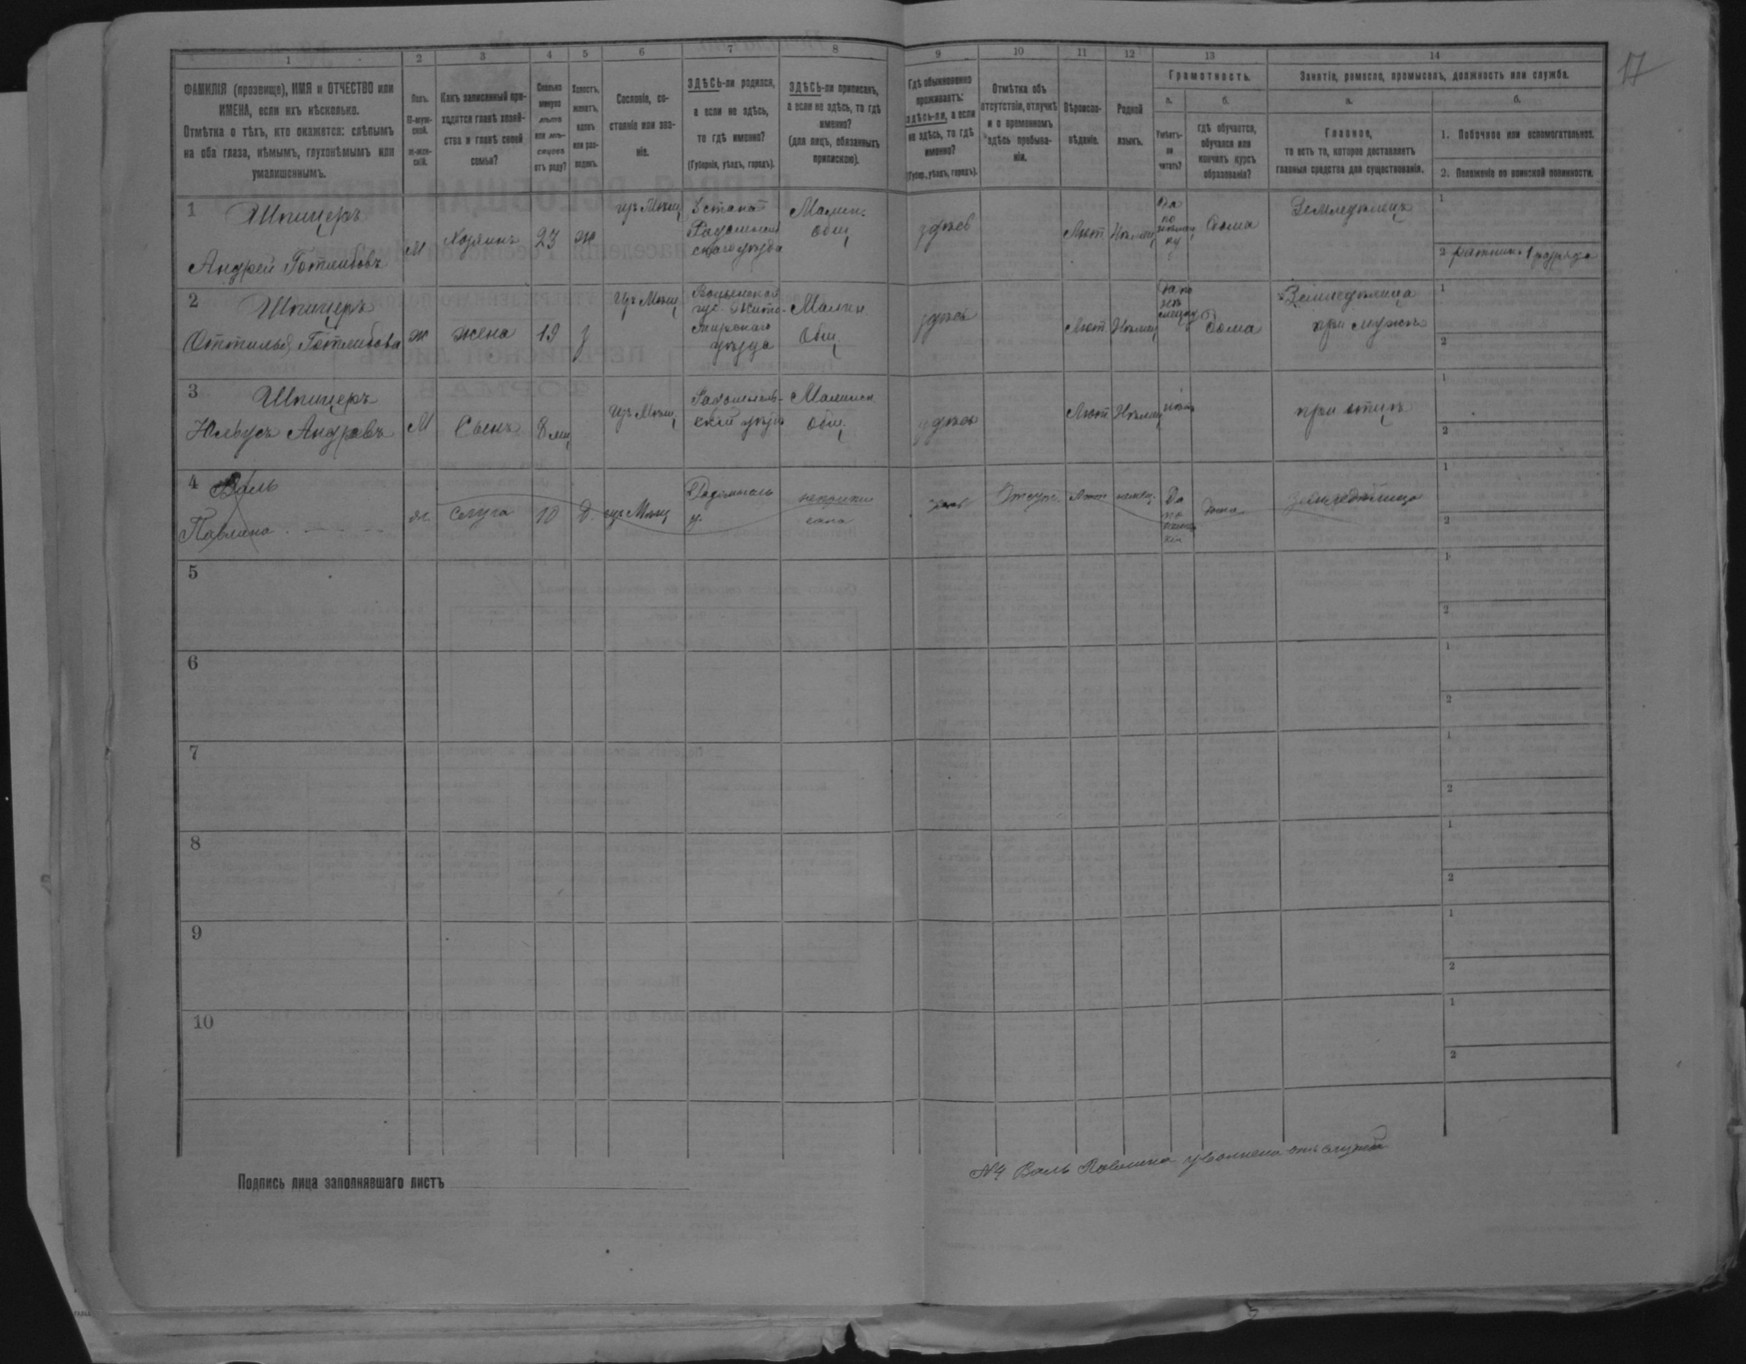 17
1 2 3 4 5 6 7 8 9 10 11 12 13 14
ФАМИЛІЯ (прозвище), ИМЯ и ОТЧЕСТВО или
ИМЕНА, если ихъ нѣсколько.
Отмѣтка о тѣхъ, кто окажется: слѣпымъ
на оба глаза, нѣмымъ, глухонѣмымъ или
умалишеннымъ.
Полъ.
М-муж-
ской.
Ж-жен-
скій.
Какъ записанный при-
ходится главѣ хозяй-
ства и главѣ своей
семьи?
Сколько
минуло
лѣтъ
или мѣ-
сяцевъ
отъ роду?
Холостъ,
женатъ,
вдовъ
или раз-
веденъ.
Сословіе, со-
стояніе или зва-
ніе.
ЗДѢСЬ-ли родился,
а если не здѣсь,
то гдѣ именно?
(Губернія, уѣздъ, городъ).
ЗДѢСЬ-ли приписанъ,
а если не здѣсь, то гдѣ
именно?
(для лицъ, обязанныхъ
припискою).
Гдѣ обыкновенно
проживаетъ:
здѣсь-ли, а если
не здѣсь, то гдѣ
именно?
(Губер., уѣздъ, городъ).
Отмѣтка объ
отсутствіи, отлучкѣ
и о временномъ
здѣсь пребыва-
ніи.
Вѣроиспо-
вѣданіе.
Родной
языкъ.
Грамотность.
а.
Умѣетъ-
ли
читать?
б.
Гдѣ обучается,
обучался или
кончилъ курсъ
образованія?
Занятіе, ремесло, промыселъ, должность или служба.
а.
Главное,
то есть то, которое доставляетъ
главныя средства для существованія.
б.
1. Побочное или вспомогательное.
2. Положеніе по воинской повинности.
1 Шпицеръ
Андрей Готлибовъ
М
Хозяинъ
23
Ж
Радомысль
скаго уѣзда
Малин.
Общ
здѣсь
Лют
Нѣмец
Да
по
Дома
Земледѣлецъ
1
2 ратник 1 разряда
2 Шпицеръ
Оттилья Готлибова
Ж
жена
19
З
Волынской
губ Жито-
мирскаго
уѣзда
Малин
Общ
здѣсь
Лют
Нѣмец
Да по
нѣ
мецки
Дома
Земледѣлица
при мужѣ
1
2
3 Шпицеръ
Юльусъ Андреевъ
М
Сынъ
8 мц
Радомысль-
скій уѣзд
Малинск
Общ.
здѣсь
Лют
Нѣмец
при отцѣ
1
2
4 Валь
Павлина
ж.
слуга
10
Д
Радомысль
у.
неприпи
сана
Лют
немец.
Да
по
дома
земледѣлица
1
2
5
1
2
6
1
2
7
1
2
8
1
2
9
1
2
10
1
2
№4 Валь Павлина уволнена отъ службы
Подпись лица заполнявшаго листъ